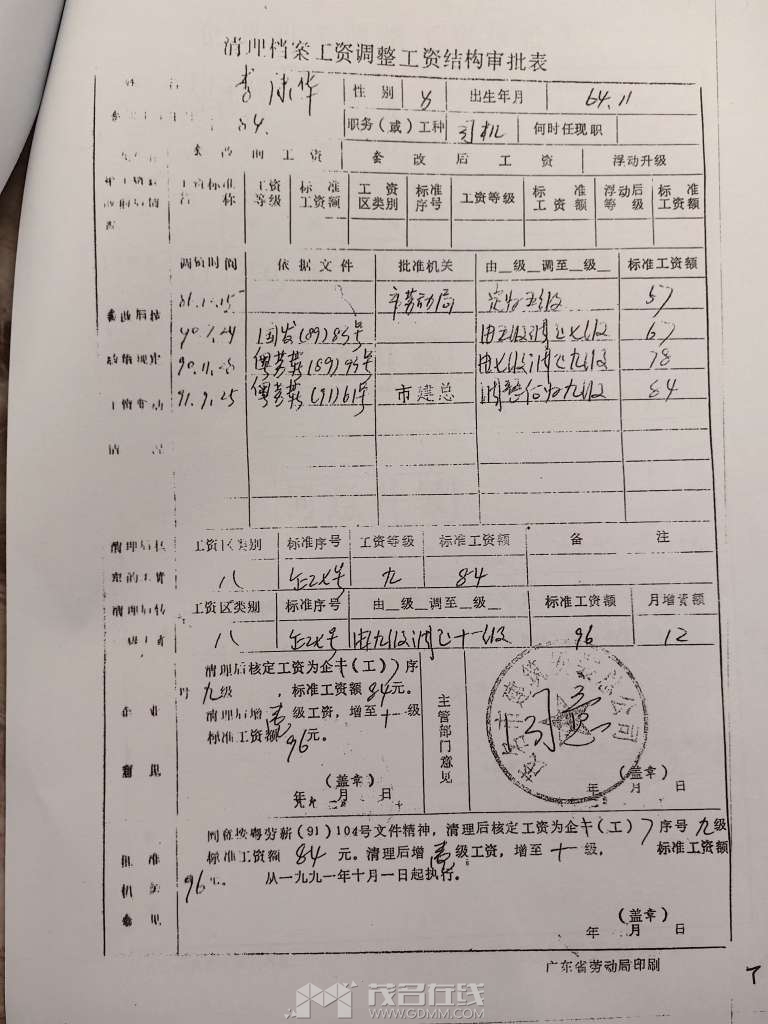 清理档案工资调整工资结构审批表
李 华 性别 女 出生年月 64.11
84. 职务(或)工种 司机 何时任现职
套改前工资 套改后工资 浮动升级
工资标准名称 工资等级 标准工资额 工资区类别 标准序号 工资等级 标准工资额 浮动后等级 标准工资额
调资时间 依据文件 批准机关 由__级__调至__级__ 标准工资额
86.1.15 市劳动局 定为五级 57
90.1.24 国发(89)83号 由五级调七级 67
90.11.23 粤劳薪(89)93号 由七级调九级 78
91.9.25 粤劳薪(91)61号 市建总 调整后为九级 84
情况
清理后核 工资区类别 标准序号 工资等级 标准工资额 备注
定的工资 八 企工七号 九 84
清理后转 工资区类别 标准序号 由__级__调至__级__ 标准工资额 月增资额
八 企工七号 由九级调十一级 96 12
清理后核定工资为企干(工)7序
号九级 ,标准工资额84元。
清理后增壹级工资,增至十一级
标准工资额96元。
企业
意见
(盖章)
年 月 日
主管部门意见
同意
(盖章)
年 月 日
同意按粤劳薪(91)104号文件精神,清理后核定工资为企干(工)7序号九级
标准工资额84元。清理后增壹级工资,增至十一级, 标准工资额
96元。 从一九九一年十月一日起执行。
批准
机关
意见
(盖章)
年 月 日
广东省劳动局印刷
茂名在线
WWW.GDMM.COM